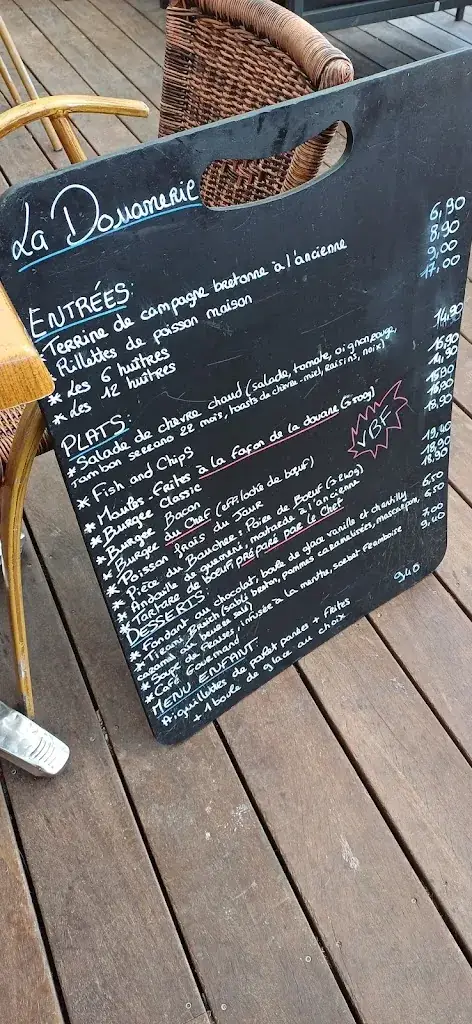 La Douanerie
ENTRÉES:
* Terrine de campagne bretonne à l'ancienne 6,90
* Rillettes de poisson maison 8,90
* Les 6 huîtres 9,00
* Les 12 huîtres 17,00
PLATS:
* Salade de chèvre chaud (salade, tomate, oignon rouge, 14,90
Jambon serrano 22 mois, toasts de chèvre-miel, raisins, noix)
* Fish and Chips
* Moules-Frites à la façon de la douane (500g)
* Burger Classic
* Burger Bacon
* Burger du Chef (effilochée de bœuf)
* Poisson frais du Jour
* Pièce du Boucher: Poire de Bœuf
* Andouille de guémené, moutarde à l'ancienne
* Tartare de Bœuf préparé par le Chef
VBF
DESSERTS:
* Fondant au chocolat, boule de glace vanille et chantilly 6,50
* Tirami Breizh (sablé breton, pommes caramélisées, mascarpone, 6,50
caramel au beurre salé)
* Soupe de fraises infusée à la menthe, sorbet framboise 7,00
* Café Gourmand 9,40
MENU ENFANT
Aiguillettes de poulet panées + frites 9,40
+ 1 boule de glace au choix